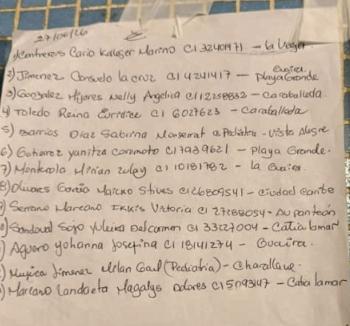 27/06/26
Contreras Cario Kalleger Marino CI 3240471 - La Vega.
2) Jimenez Consuelo la cruz CI 4241417 - Guaira. Playa Grande
3) Gonzalez Hijares Nelly Angelia CI 12158833 - Caraballeda.
4) Toledo Reina Torrence CI 6027623 - Caraballeda
5) Barrios Diaz Sabrina Monserrat a Pediatra - Vista Alegre
6) Gutierrez yanitza coromoto CI 7939621 - Playa Grande.
7) Mirian zulay CI 10181782 - La Guaira.
Olivares García Marcko Stives CI 26809541 - Ciudad Caribe
Serrano Marcano Vitoria CI 27689054 - Au panteón
Sandoval Sojo Yuleixa Delcarmen CI 33227004 - Catia lamar
Aguero yohanna josefina CI 18141274 - Guaira.
Mujica Jimenez Milan Gael (Pediatria) - Charallave.
Marcano Landaeta Magalys Dolores CI 5093147 - Catia lamar